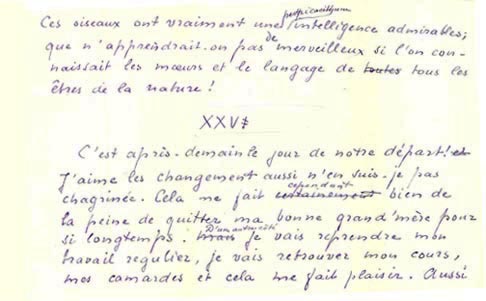 Ces oiseaux ont vraiment une intelligence admirables;
de
que n'apprendrait-on pas merveilleux si l'on con-
naissait les mœurs et le langage de toutes tous les
êtres de la nature !
XXV
C'est après-demain le jour de notre départ!
J'aime les changement aussi n'en suis-je pas
cependant
chagrinée. Cela me fait certainement bien de
la peine de quitter ma bonne grand'mère pour
D'un autre côté
si longtemps. mais je vais reprendre mon
travail regulier, je vais retrouver mon cours,
mes camardes et cela me fait plaisir. Aussi